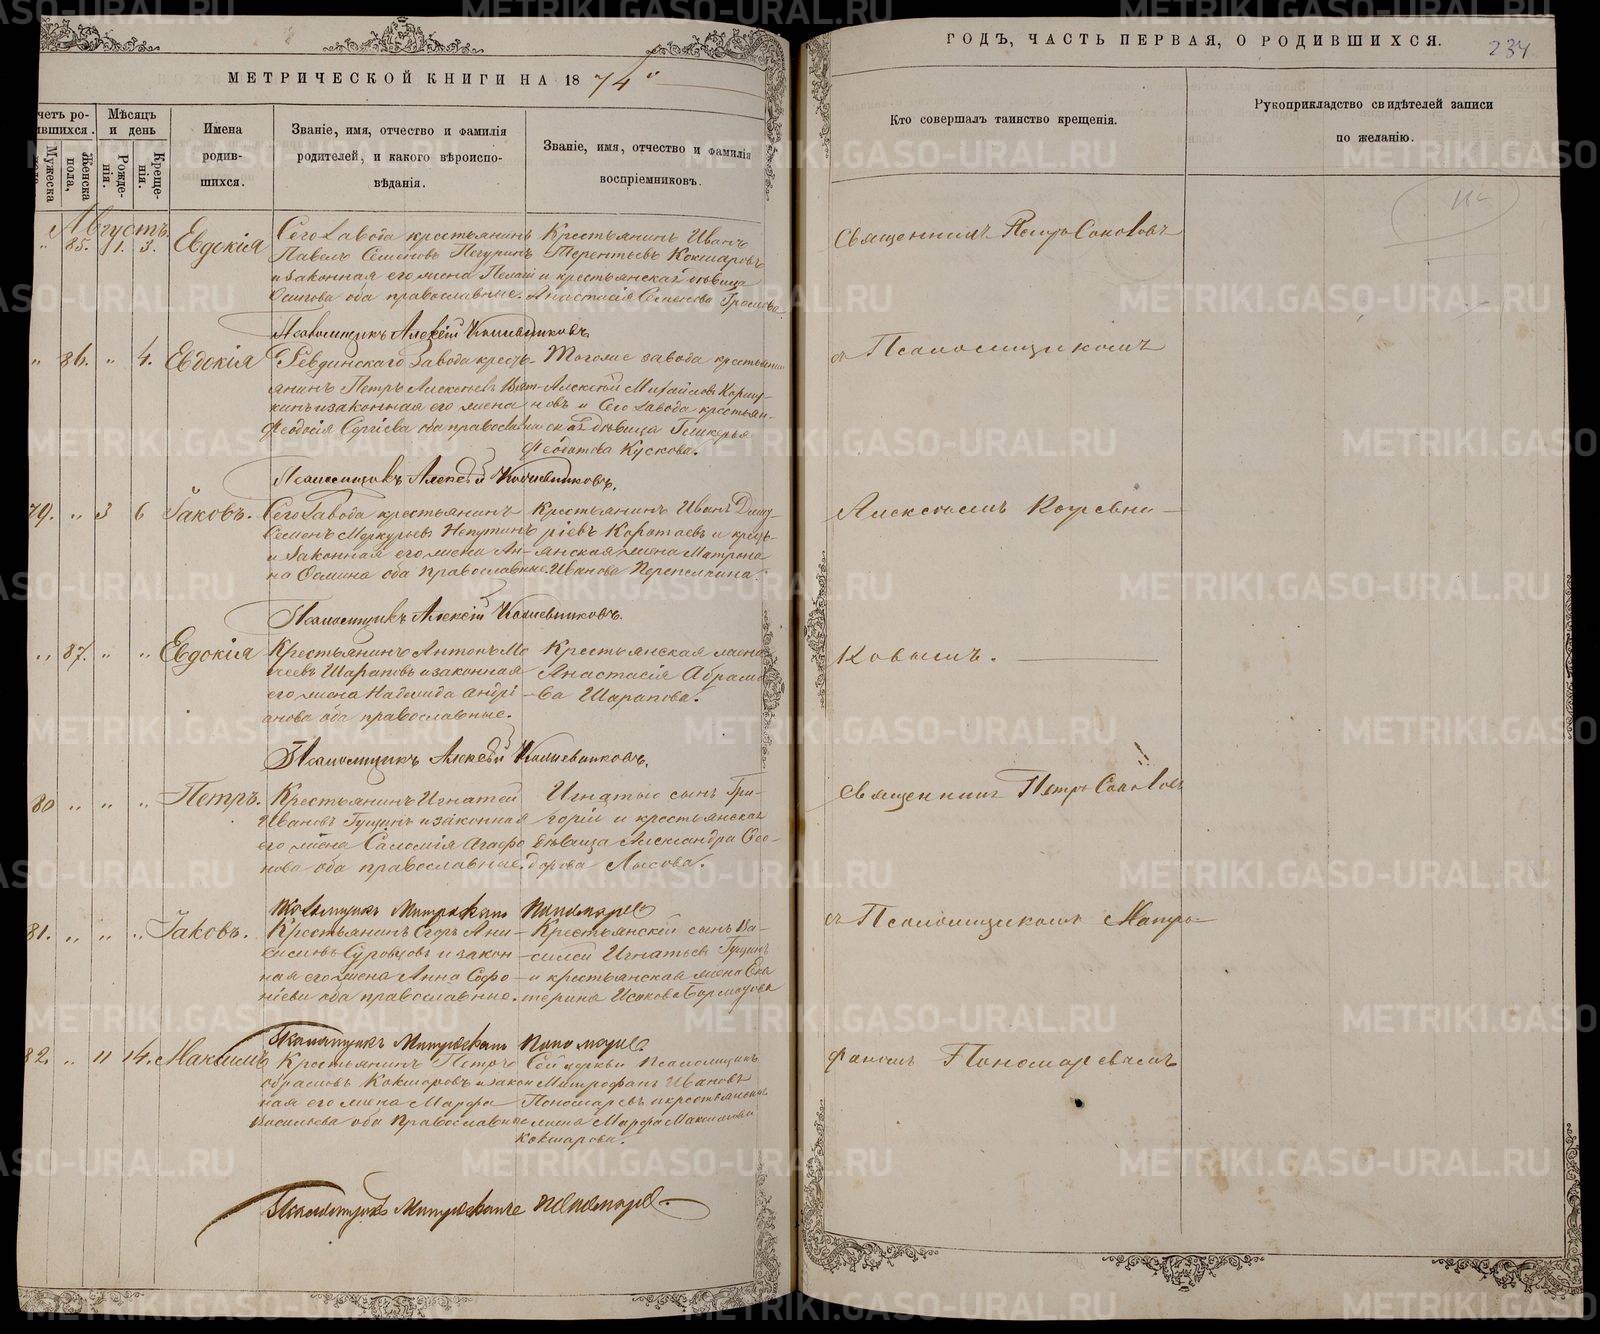 МЕТРИЧЕСКОЙ КНИГИ НА 1874й
ГОДЪ, ЧАСТЬ ПЕРВАЯ, О РОДИВШИХСЯ.
234
четъ ро-
ившихся.
Мужеска
Женска пола,
Мѣсяцъ и день
Рожде-нія.
Креще-нія.
Имена родив-шихся.
Званіе, имя, отчество и фамилія
родителей, и какого вѣроиспо-
вѣданія.
Званіе, имя, отчество и фамилія
воспріемниковъ.
Кто совершалъ таинство крещенія.
Рукоприкладство свидѣтелей записи
по желанію.
Августъ.
" 85. 1. 3. Евдокія
Сего Завода крестьянинъ
Павелъ Семеновъ
и законная его жена Пелагія
Осипова оба православные.
Крестьянинъ Иванъ
Терентьевъ Кокшаровъ
и крестьянская дѣвица
Анастасія Семенова Громова
Священникъ Петръ Соколовъ
Псаломщикъ Алексій Кожевниковъ
" 86. " 4. Евдокія
Ревдинскаго Завода кресть-
янинъ Петръ Алексѣевъ Вят-
кинъ и законная его жена
Феодосія Сергіева оба православ
Тогоже завода крестьянин
Алексѣй Михайловъ Коршу-
новъ и Сего Завода крестьян-
ская дѣвица Гликерья
Федотова Кускова.
съ Псаломщикомъ
Псаломщикъ Алексѣй Кожевниковъ.
79. " 3 6 Іаковъ.
Сего Завода крестьянинъ
Семенъ Меркурьевъ Непутинъ
и Законная его жена Ан-
на Фомина оба православные.
Крестьянинъ Иванъ Дмит-
ріевъ Коротаевъ и кресть-
янская жена Матрона
Иванова Перепелкина.
Алексѣемъ Кожевни-
Псаломщикъ Алексій Кожевниковъ.
" 87. " " Евдокія
Крестьянинъ Антонъ Мо
исеевъ Шараповъ и законная
его жена Надежда Андрі-
анова оба православные.
Крестьянская жена
Анастасія Абрамо
-ва Шарапова.
ковымъ.
Псаломщикъ Алексѣй Кожевниковъ.
80 " " " Петръ.
Крестьянинъ Игнатей
Ивановъ Гущинъ и законная
его жена Саломія Агафо
нова оба православные.
Игнатью сынъ Гри-
горій и крестьянская
дѣвица Александра Фео-
дорова Лысова.
Священникъ Петръ Соколовъ
Псаломщикъ Митрофанъ Пономаревъ
81. " " " Іаковъ.
Крестьянинъ Егоръ Ани-
симовъ Суровцовъ и закон-
ная его жена Анна Софо-
ніева оба православные.
Крестьянскій сынъ Ва-
силей Игнатьевъ Гущинъ
и крестьянская жена Ека
терина Исакова Бармотова
съ Псаломщикомъ Митро-
Псаломщикъ Митрофанъ Пономаревъ.
82. " 11 14. Максимъ
Крестьянинъ Петръ
Абрамовъ Кокшаровъ и закон
ная его жена Марфа
Васильева оба православные
Сей церкви Псаломщикъ
Митрофанъ Ивановъ
Пономаревъ и крестьянская
жена Марфа Максимова
Кокшарова.
фаномъ Пономаревымъ
Псаломщикъ Митрофанъ Пономаревъ.